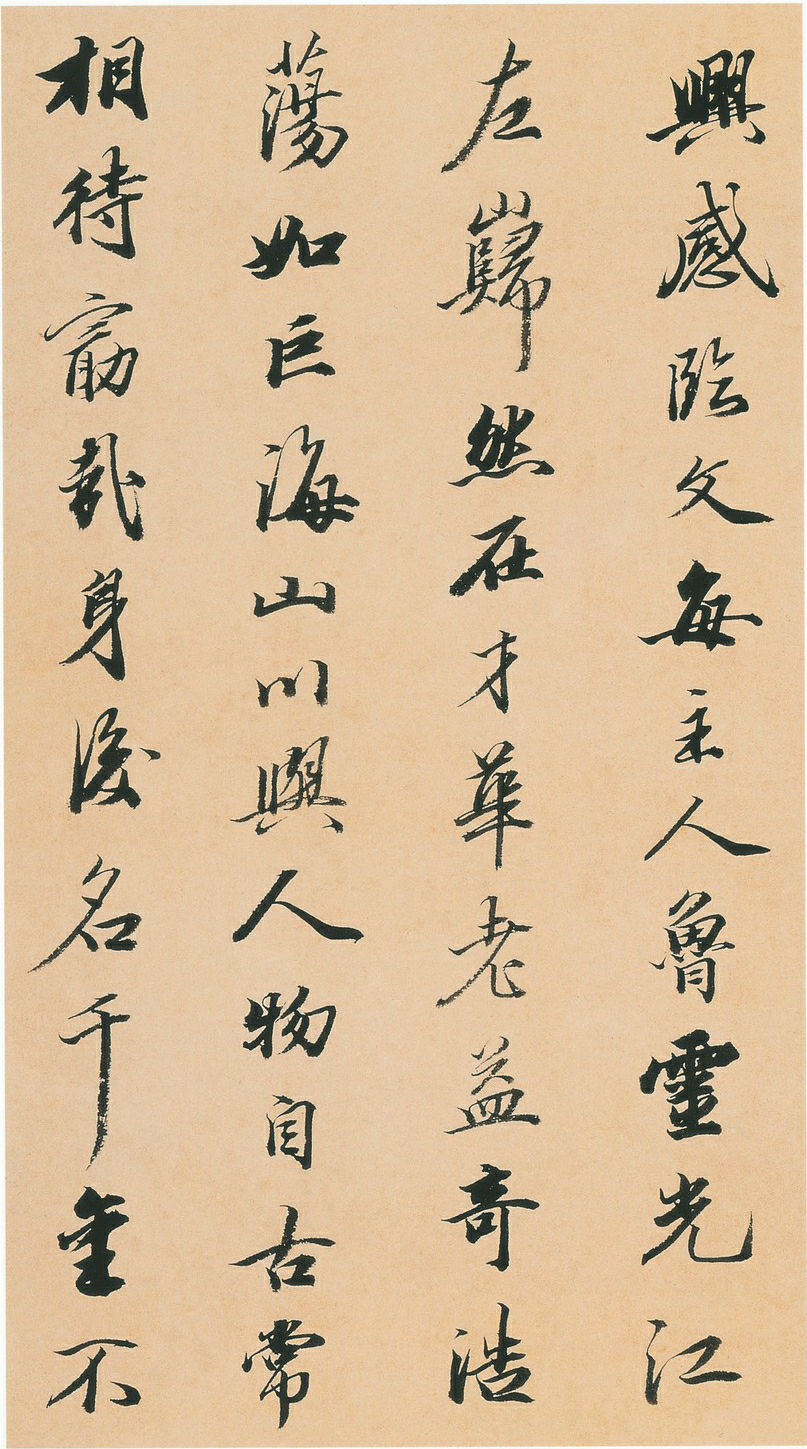 興感臨文每主人魯靈光江
左巋然在才華老益奇浩
蕩如巨海山川與人物自古常
相待勖哉身後名千金不